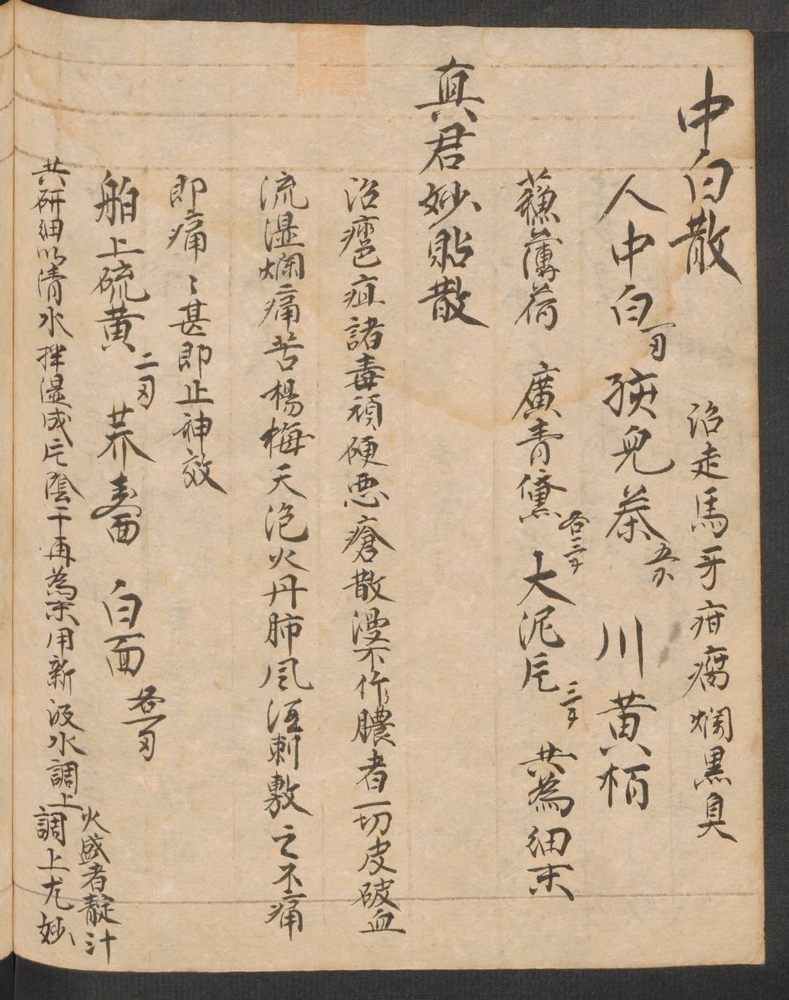 中白散 治走馬牙疳腐爛黑臭
人中白一両 孩兒茶五分 川黄栢
蘓薄荷 廣青黛各三錢 大泥片三錢 共為細末
真君妙貼散
治癰疽諸毒頑硬悪瘡散漫不作膿者一切皮破血
流湿爛痛苦楊梅天泡火丹肺風酒刺敷之不痛
即痛〻甚即止神效
舶上硫黄二両 荞麥面 白面各一両
共研細以清水拌湿成片陰干再為末用新汲水調上
火盛者靛汁
調上尤妙